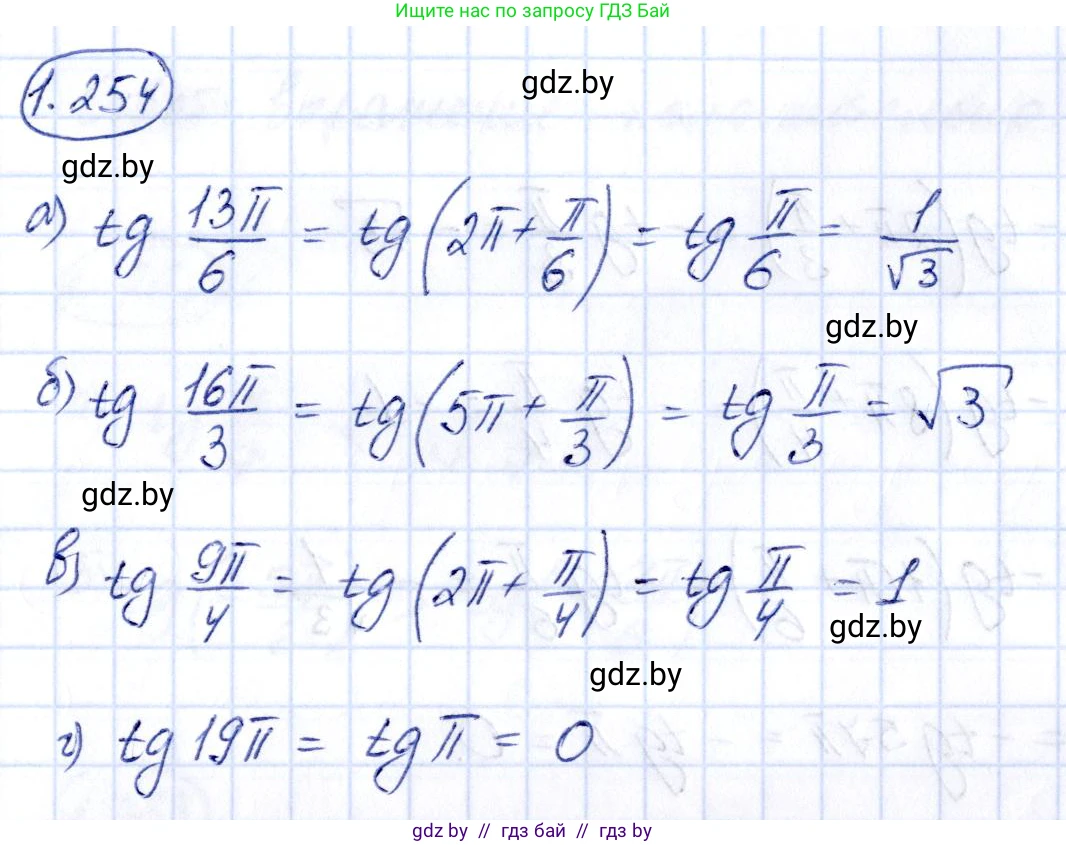 Ищите нас по запросу ГДЗ Бай
1.254
gdz.by
gdz.by
а) tg 13π/6 = tg(2π + π/6) = tg π/6 = 1/√3
gdz.by
б) tg 16π/3 = tg(5π + π/3) = tg π/3 = √3
gdz.by
в) tg 9π/4 = tg(2π + π/4) = tg π/4 = 1
gdz.by
gdz.by
г) tg 19π = tg π = 0
gdz.by // гдз бай // гдз by